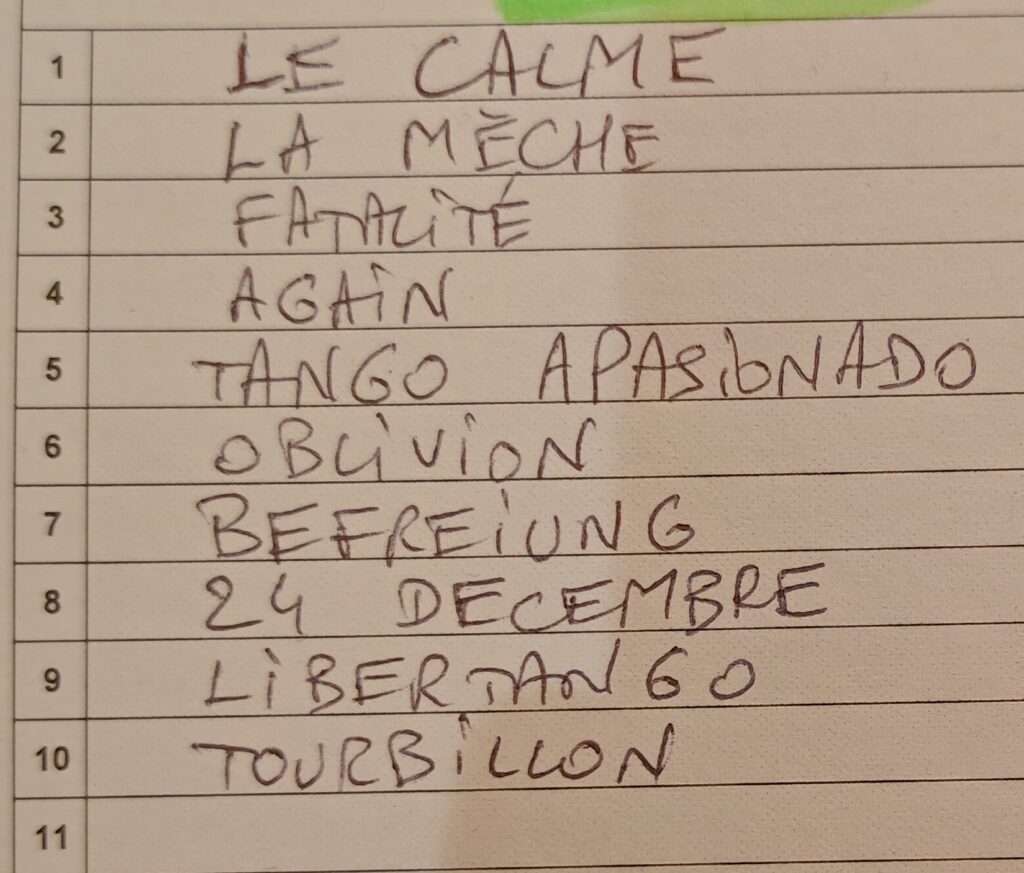 1 LE CALME
2 LA MÈCHE
3 FATALITÉ
4 AGAIN
5 TANGO APASIONADO
6 OBLIVION
7 BEFREIUNG
8 24 DECEMBRE
9 LIBERTANGO
10 TOURBILLON
11